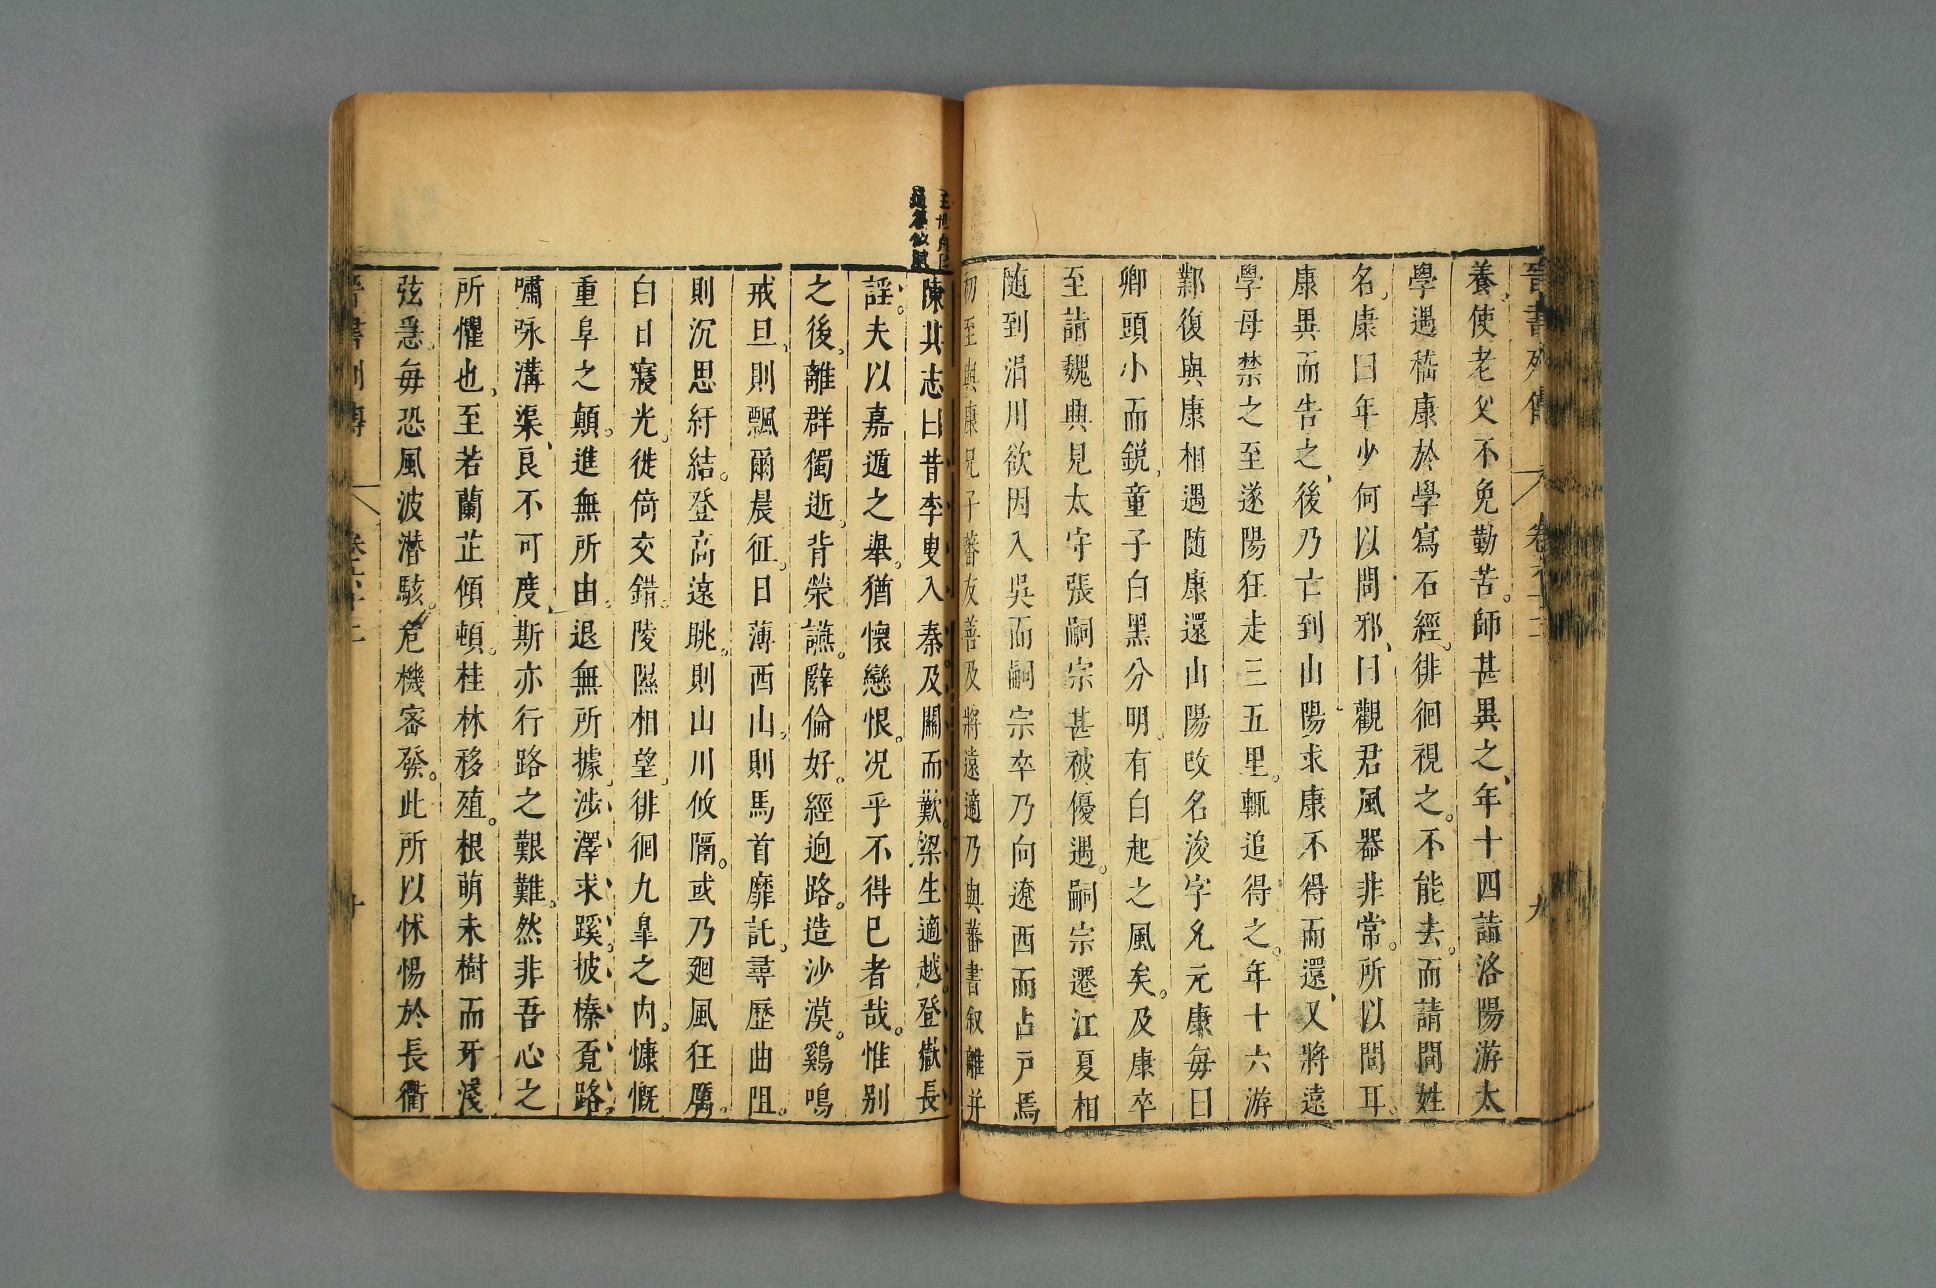 晉書列傳 卷六十二 九
養。使老父不免勤苦。師甚異之、年十四詣洛陽游太
學遇嵇康於學寫石經。徘徊視之。不能去。而請問姓
名。康曰年少何以問邪、曰觀君風器非常。所以問耳。
康異而告之、後乃亡到山陽求康不得而還、又將遠
學母禁之至遂陽狂走三五里。輒追得之。年十六游
鄴復與康相遇随康還山陽改名浚字允元康每曰
卿頭小而銳、童子白黑分明。有白起之風矣。及康卒
至詣魏興見太守張嗣宗甚被優遇。嗣宗遷江夏相
随到涓川欲因入吳而嗣宗卒乃向遼西而占戸焉
初至與康兄子蕃友善及將遠適乃與蕃書叙離并
陳其志曰昔李叟入秦。及關而歎。梁生適越。登嶽長
謡。夫以嘉遁之舉。猶懷戀恨。况乎不得已者哉。惟别
之後。離群獨逝。背榮讌。辭倫好。經迥路。造沙漠。鷄鳴
戒旦、則飄爾晨征。日薄西山。則馬首靡託。尋歷曲阻。
則沉思紆結。登高遠眺。則山川攸隔。或乃廻風狂厲。
白日寢光。徙倚交錯。陵隰相望。徘徊九臯之内。慷慨
重阜之顛。進無所由。退無所據。涉澤求蹊。披榛覓路。
嘯咏溝渠、良不可度、斯亦行路之艱難。然非吾心之
所懼也、至若蘭芷傾頓。桂林移殖。根萌未樹而牙淺
弦急。每恐風波潜駭。危機密發。此所以怵惕於長衢
晉書列傳 卷六十二 十